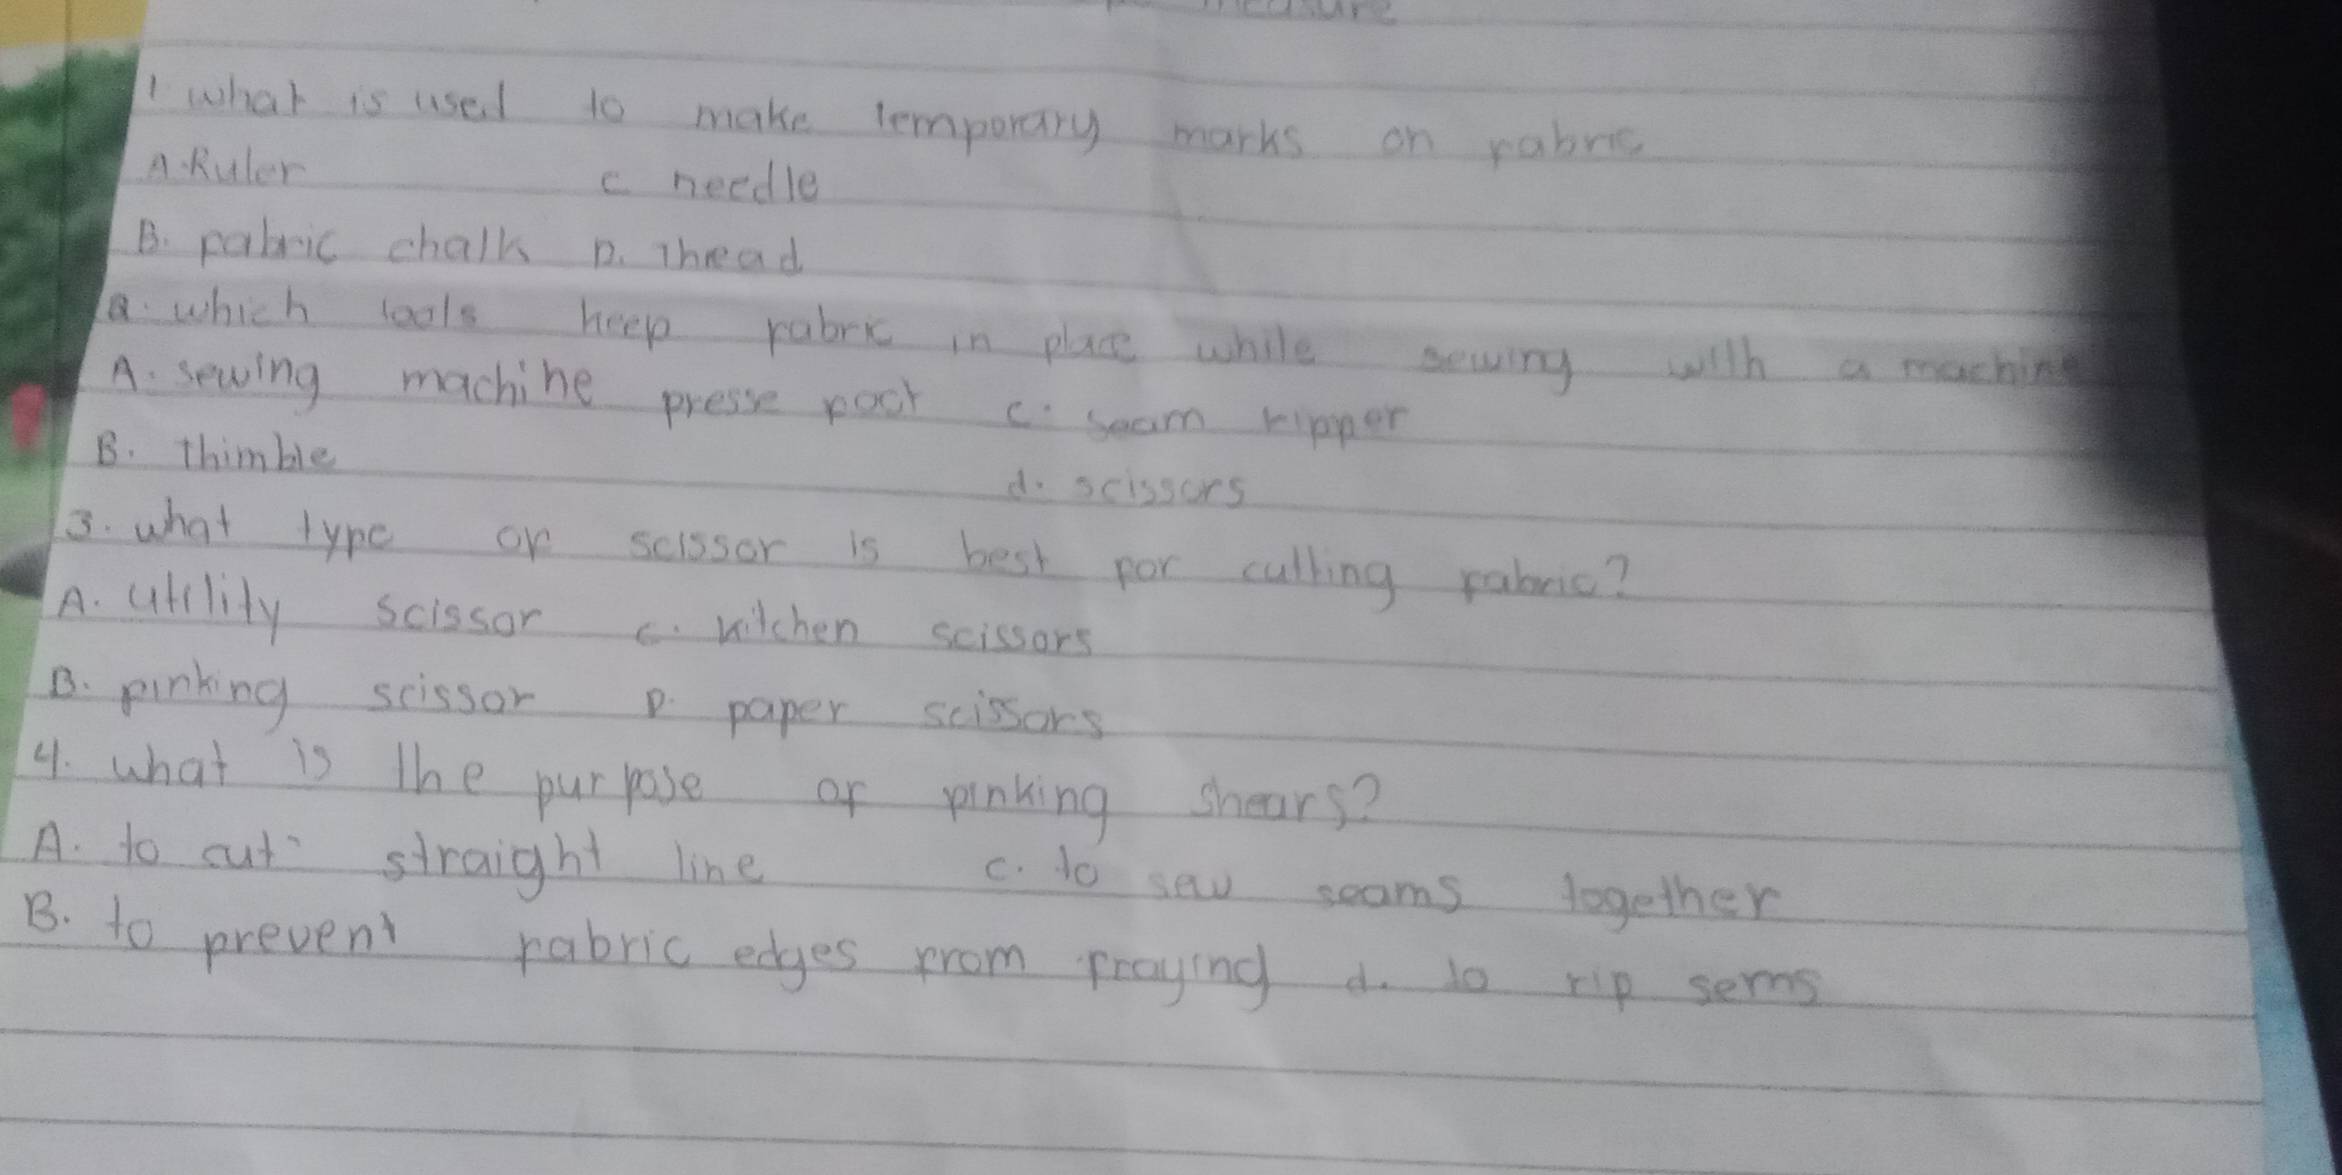 measure
1 what is used to make temporary marks on fabric
A. Ruler c needle
B. fabric chalk D. Thread
2. which tools keep fabric in place while sewing with a machine
A. sewing machine presse foot c. seam ripper
B. thimble
d. scissors
3. what type of scissor is best for cutting fabric?
A. utility scissor c. kitchen scissors
B. pinking scissor D. paper scissors
4. what is the purpose of pinking shears?
A. to cut straight line c. to sew seams together
B. to prevent fabric edges from fraying d. to rip sems